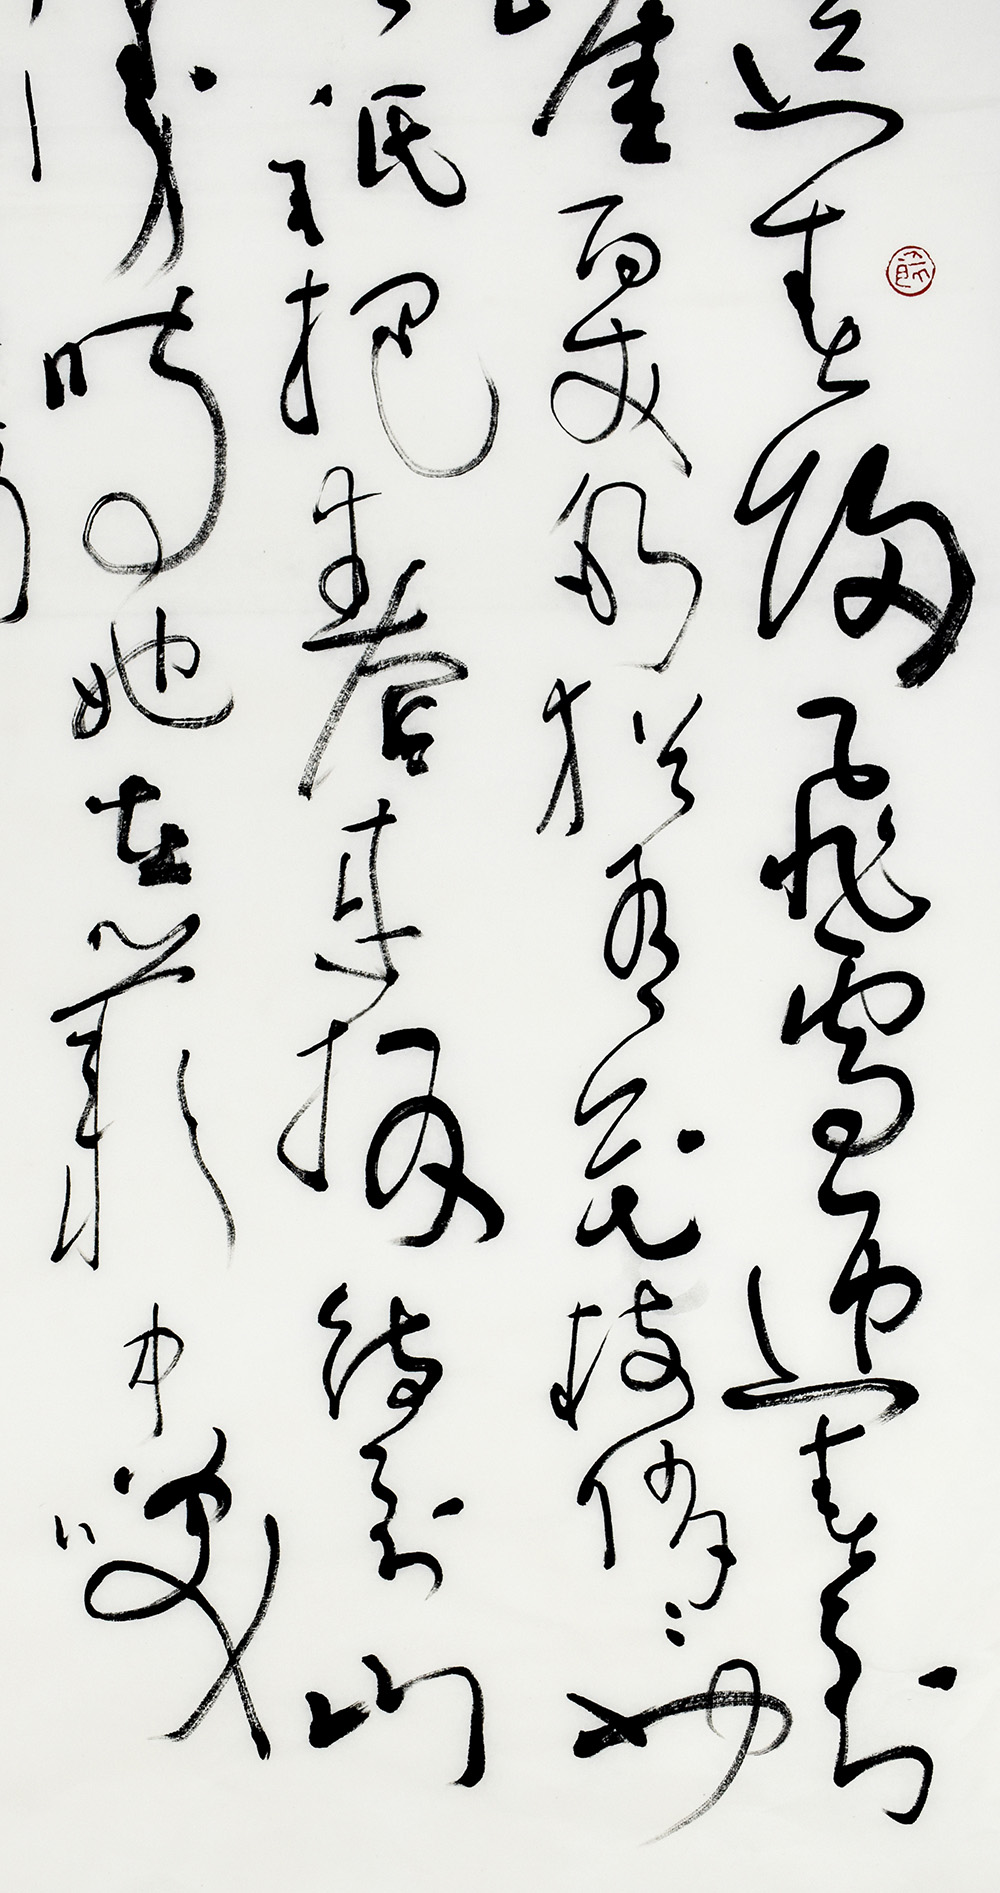 送春歸飛雪迎春到
崖百丈冰猶有花枝俏〻也
祇把春來報待到山
漫時她在叢中笑